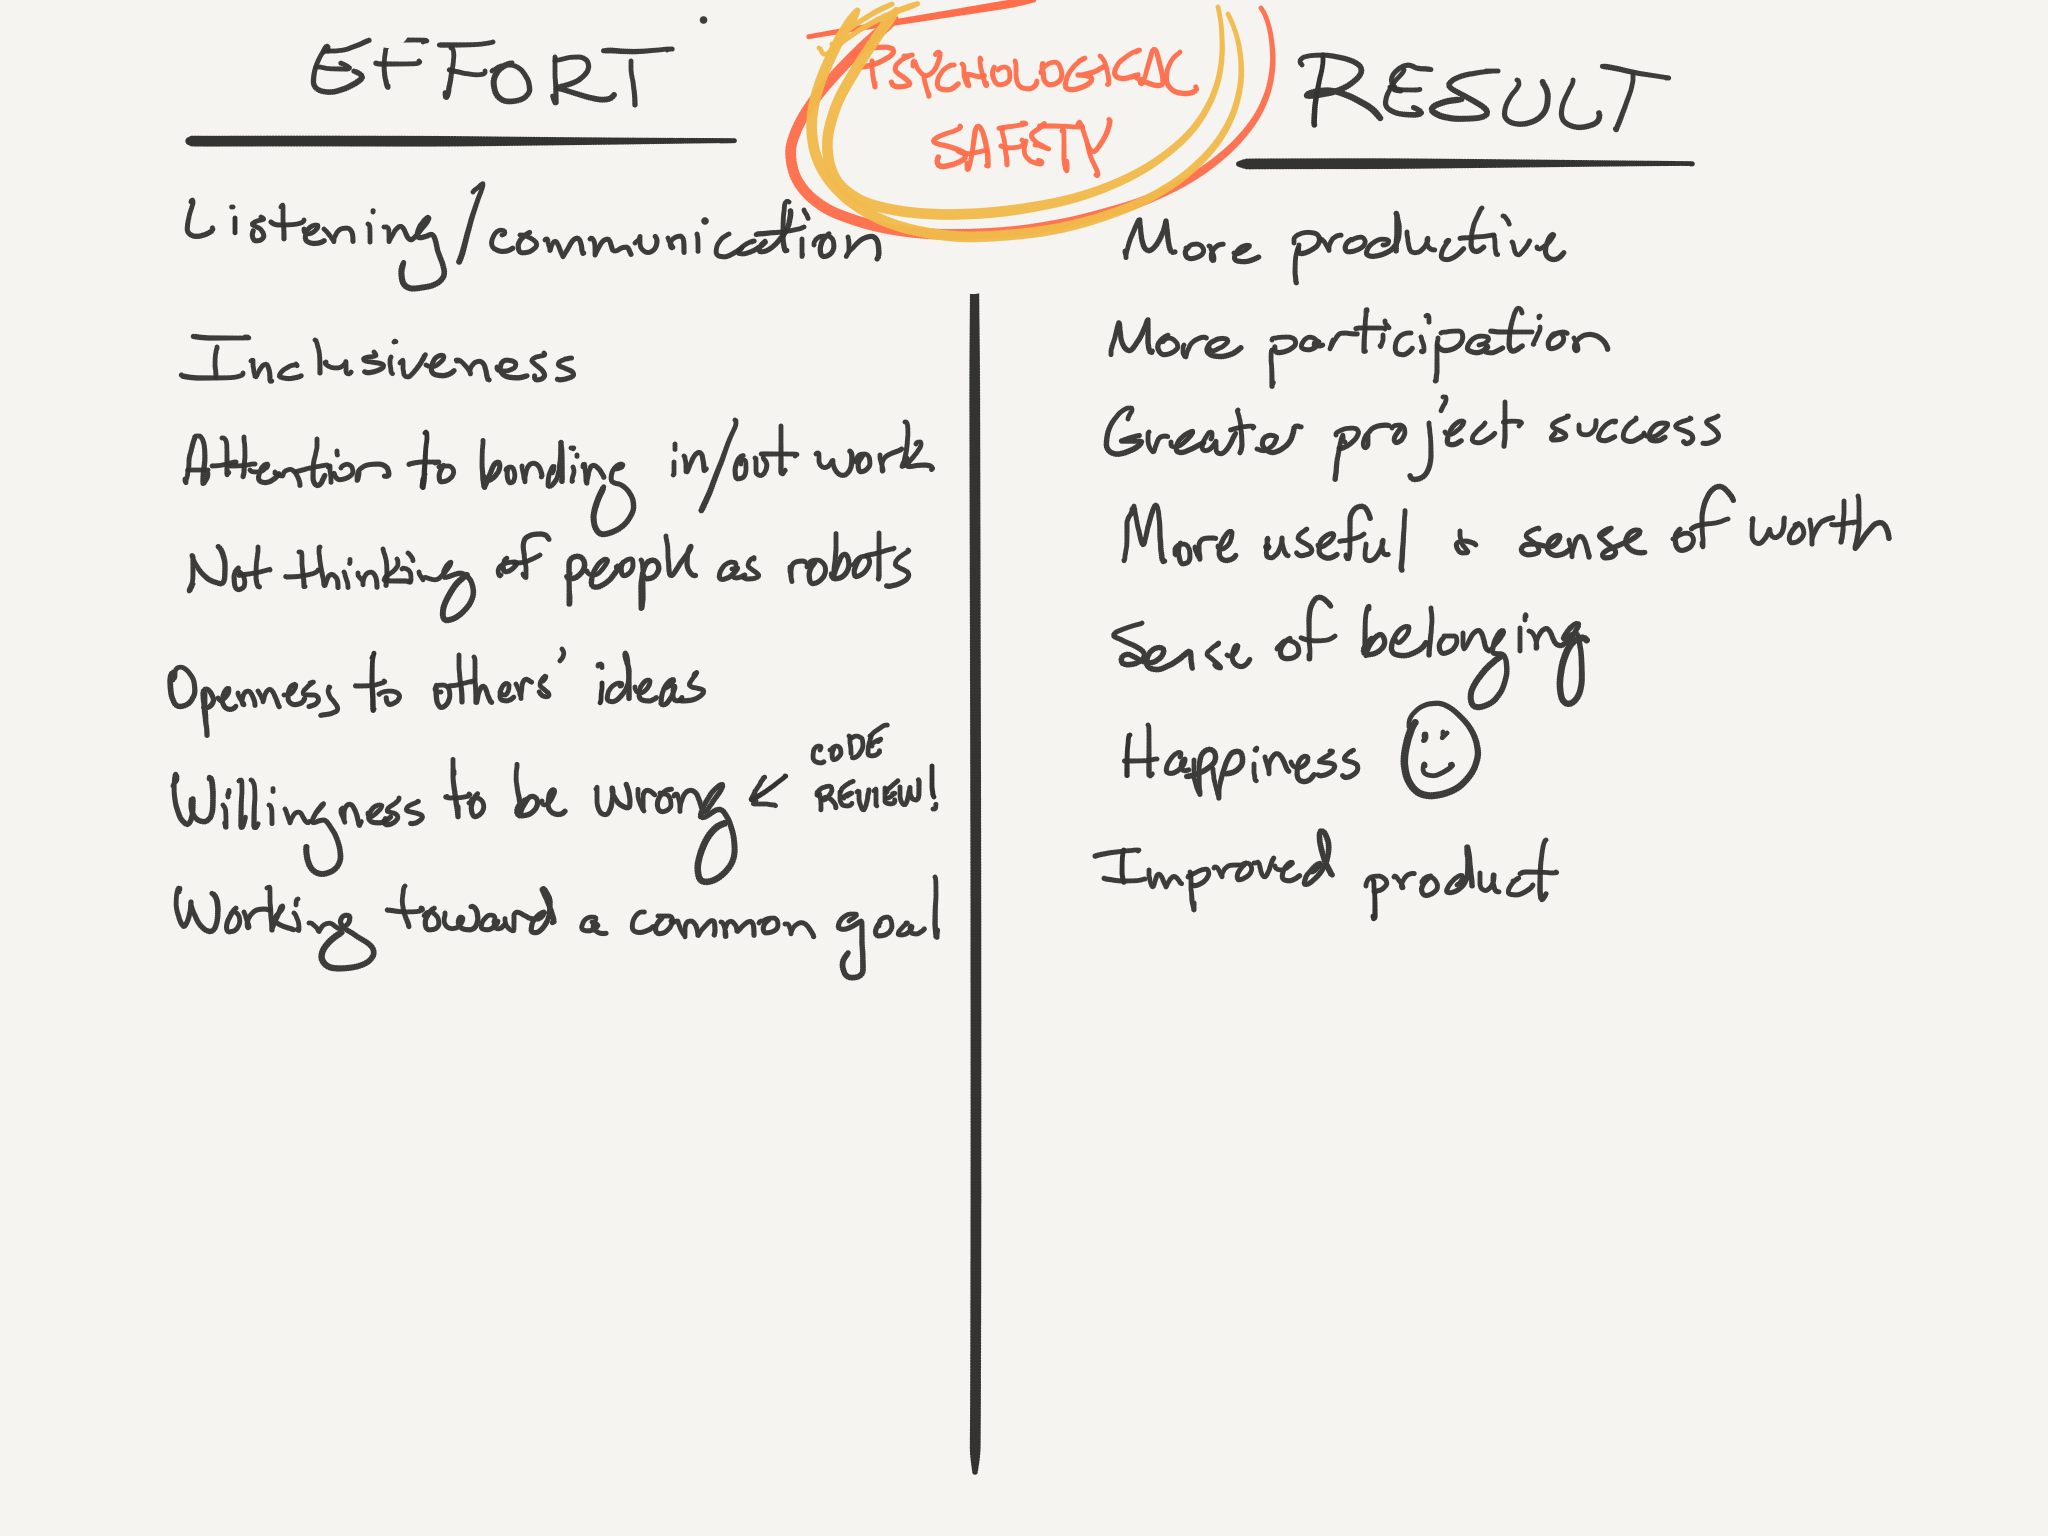 EFFORT
Listening/communication
Inclusiveness
Attention to bonding in/out work
Not thinking of people as robots
Openness to others' ideas
Willingness to be wrong
CODE
REVIEW!
Working toward a common goal
PSYCHOLOGICAL
SAFETY
RESULT
More productive
More participation
Greater project success
More useful & sense of worth
Sense of belonging
Happiness
Improved product